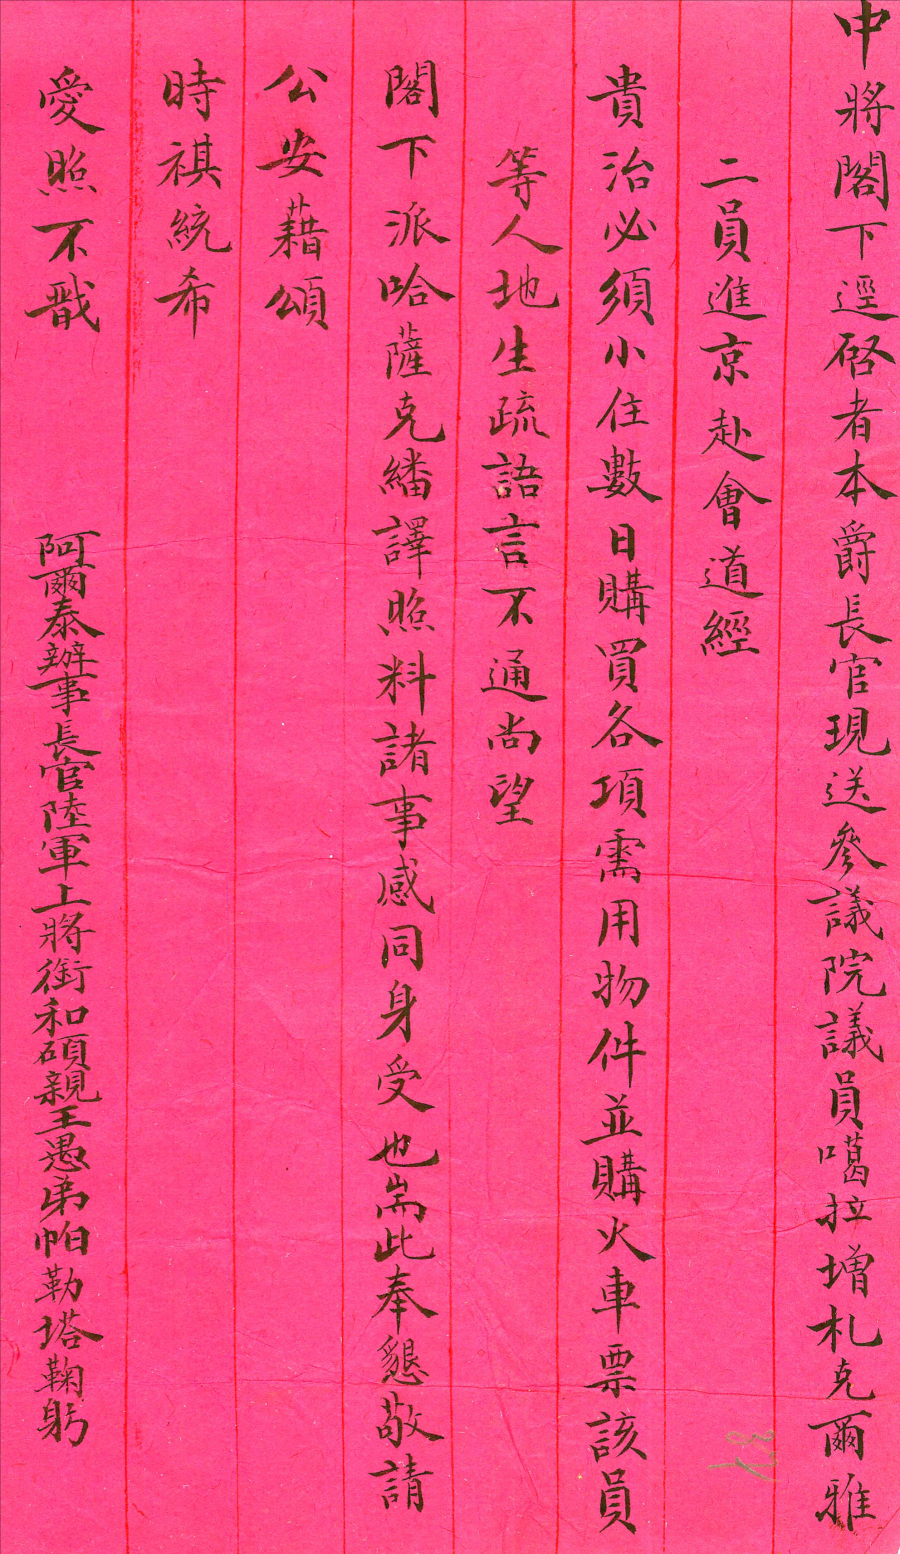 中將閣下逕啓者本爵長官現送參議院議員噶拉增札克爾雅
二員進京赴會道經
貴治必須小住數日購買各項需用物件並購火車票該員
等人地生疏語言不通尚望
閣下派哈薩克繙譯照料諸事感同身受也耑此奉懇敬請
公安藉頌
時祺統希
愛照不戬
阿爾泰辦事長官陸軍上將銜和碩親王愚弟帕勒塔鞠躬